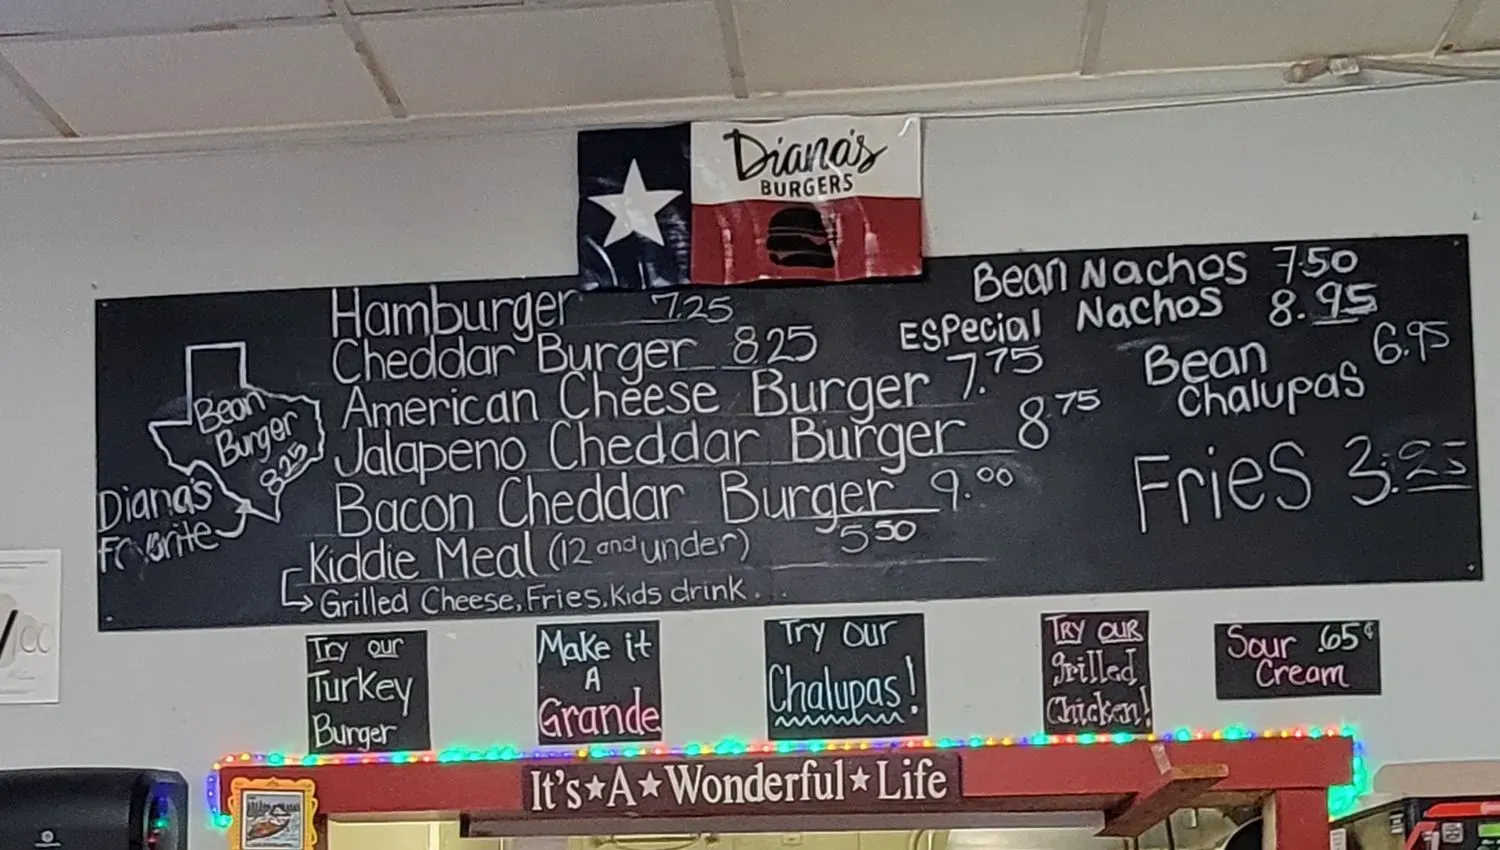 Diana's
BURGERS
Hamburger 7.25
Cheddar Burger 8.25
American Cheese Burger 7.75
Jalapeno Cheddar Burger 8 75
Bacon Cheddar Burger 9.00
Kiddie Meal (12 and under) 5 50
Grilled Cheese, Fries, Kids drink.
Bean
Burger
8.25
Diana's
Favorite
Bean Nachos 7.50
ESPecial Nachos 8.95
Bean 6.95
Chalupas
Fries 3.25
Try our
Turkey
Burger
Make it
A
Grande
Try our
Chalupas!
TRY OUR
grilled
Chicken!
Sour .65¢
Cream
It's★A★Wonderful★Life